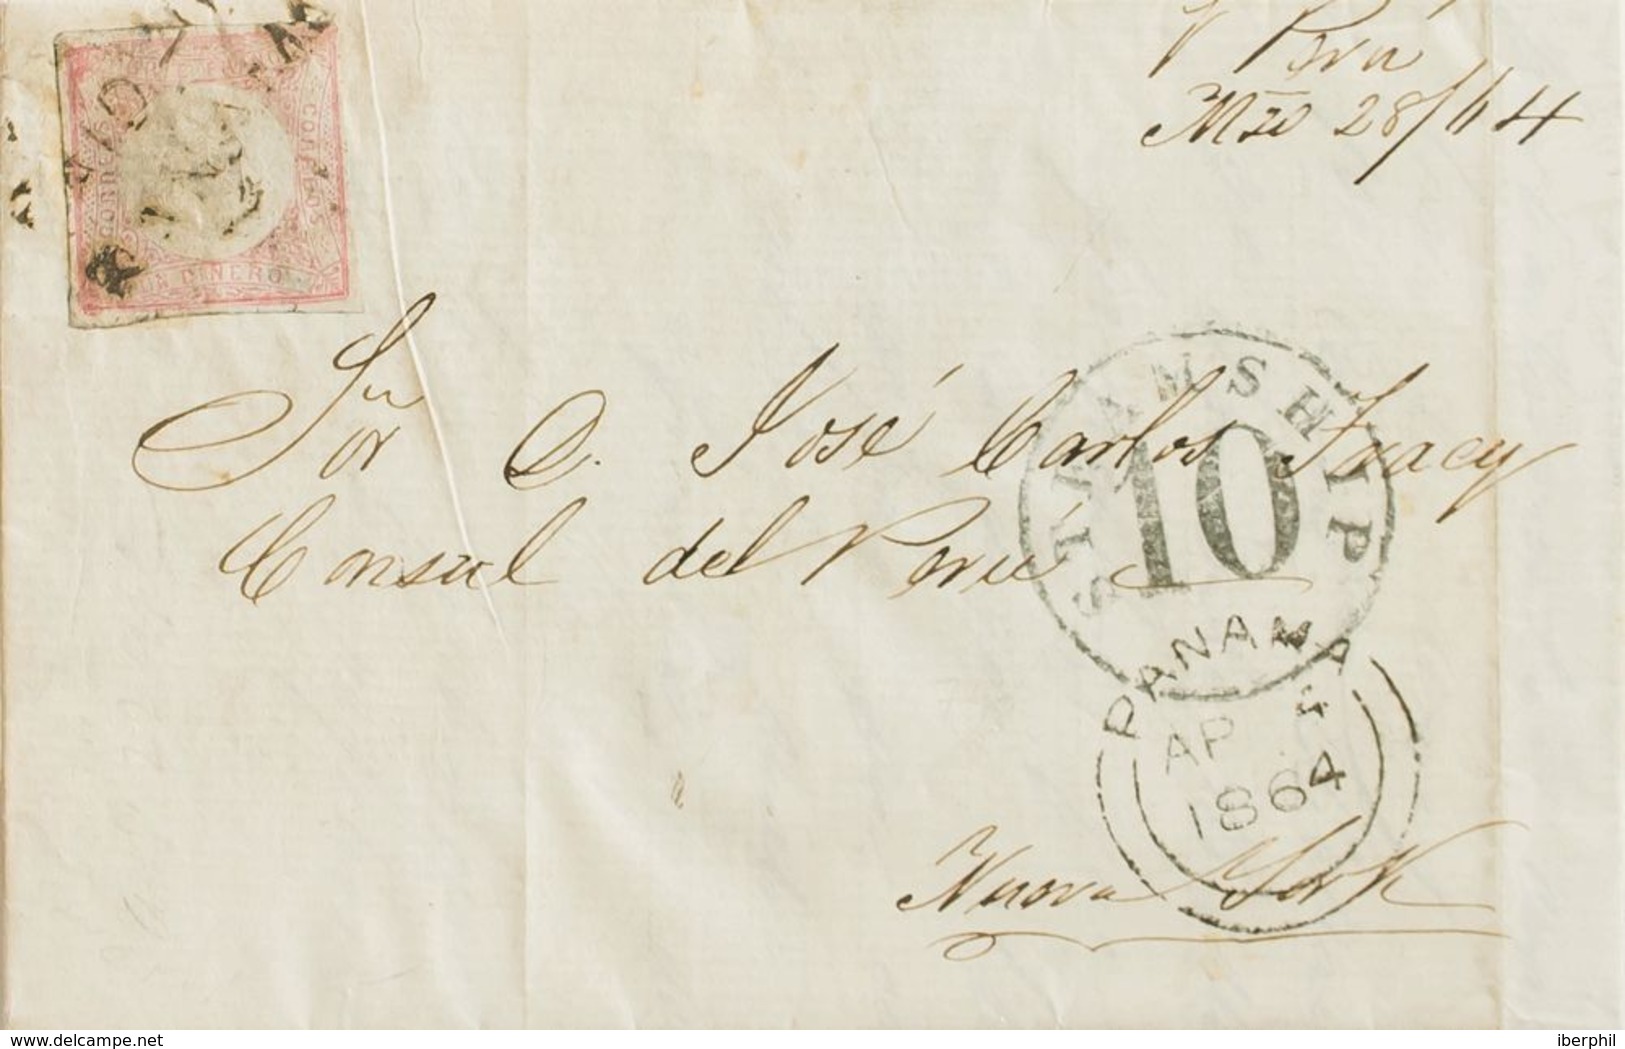 V Perú
Mzo 28/64
CORREOS
CORREOS
UN DINERO
Sor D. José Carlos Tracy
Consul del Perú
STEAMSHIP
10
PANAMA
AP 4
1864
Nueva York
delcampe.net
iberphil